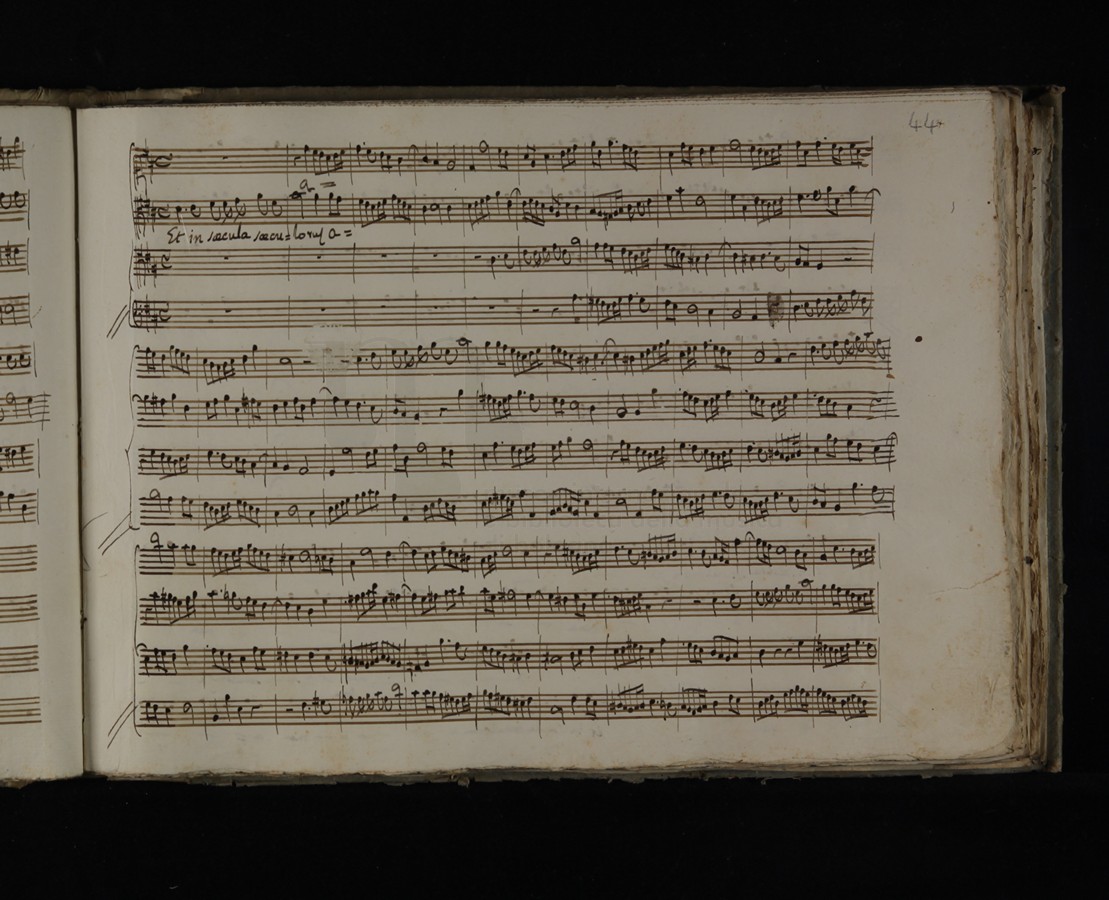 44
a =
Et in sæcula sæcu= loruɱ a =